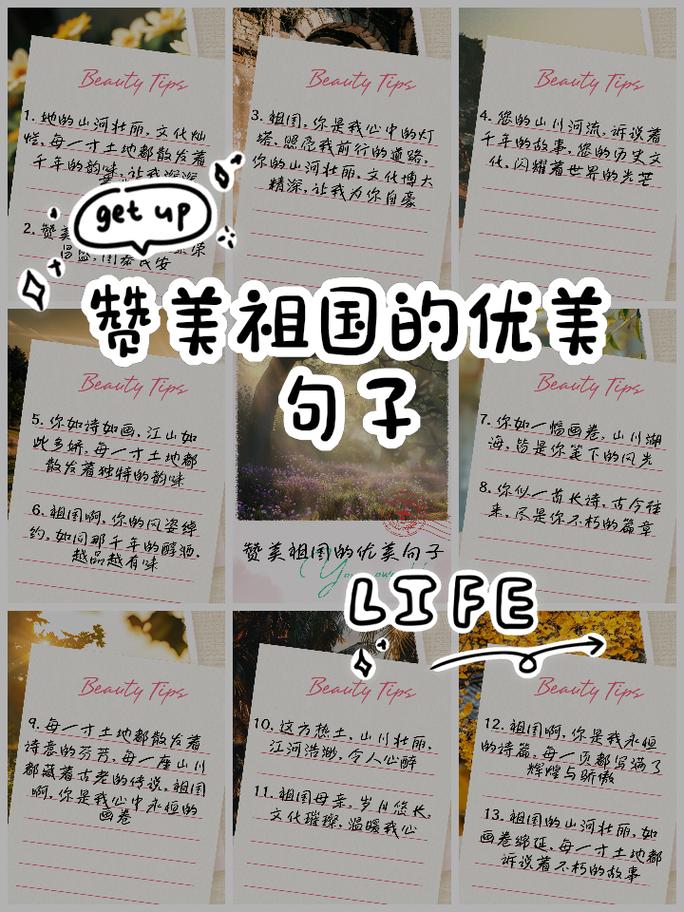 Beauty Tips
1. 她的山河壮丽，文化灿
烂，每一寸土地都散发着
千年的韵味，让我深深
2. 赞美
昌盛，国泰民安
Beauty Tips
3. 祖国，你是我心中的灯
塔，照亮我前行的道路，
你的山河壮丽，文化博大
精深，让我为你自豪
Beauty Tips
4. 您的山川河流，诉说着
千年的故事，您的历史文
化，闪耀着世界的光芒
get up
赞美祖国的优美
句子
Beauty Tips
5. 你如诗如画，江山如
此多娇，每一寸土地都
散发着独特的韵味
6. 祖国啊，你的风姿绰
约，如同那千年的醇酒，
越品越有味
赞美祖国的优美句子
Beauty Tips
7. 你如一幅画卷，山川湖
海，皆是你笔下的风光
8. 你似一首长诗，古今往
来，尽是你不朽的篇章
LIFE
Beauty Tips
9. 每一寸土地都散发着
诗意的芬芳，每一座山川
都藏着古老的传说，祖国
啊，你是我心中永恒的
画卷
Beauty Tips
10. 这方热土，山川壮丽，
江河浩渺，令人心醉
11. 祖国母亲，岁月悠长，
文化璀璨，温暖我心
Beauty Tips
12. 祖国啊，你是我永恒
的诗篇，每一页都写满了
辉煌与骄傲
13. 祖国的山河壮丽，如
画卷绵延，每一寸土地都
诉说着不朽的故事